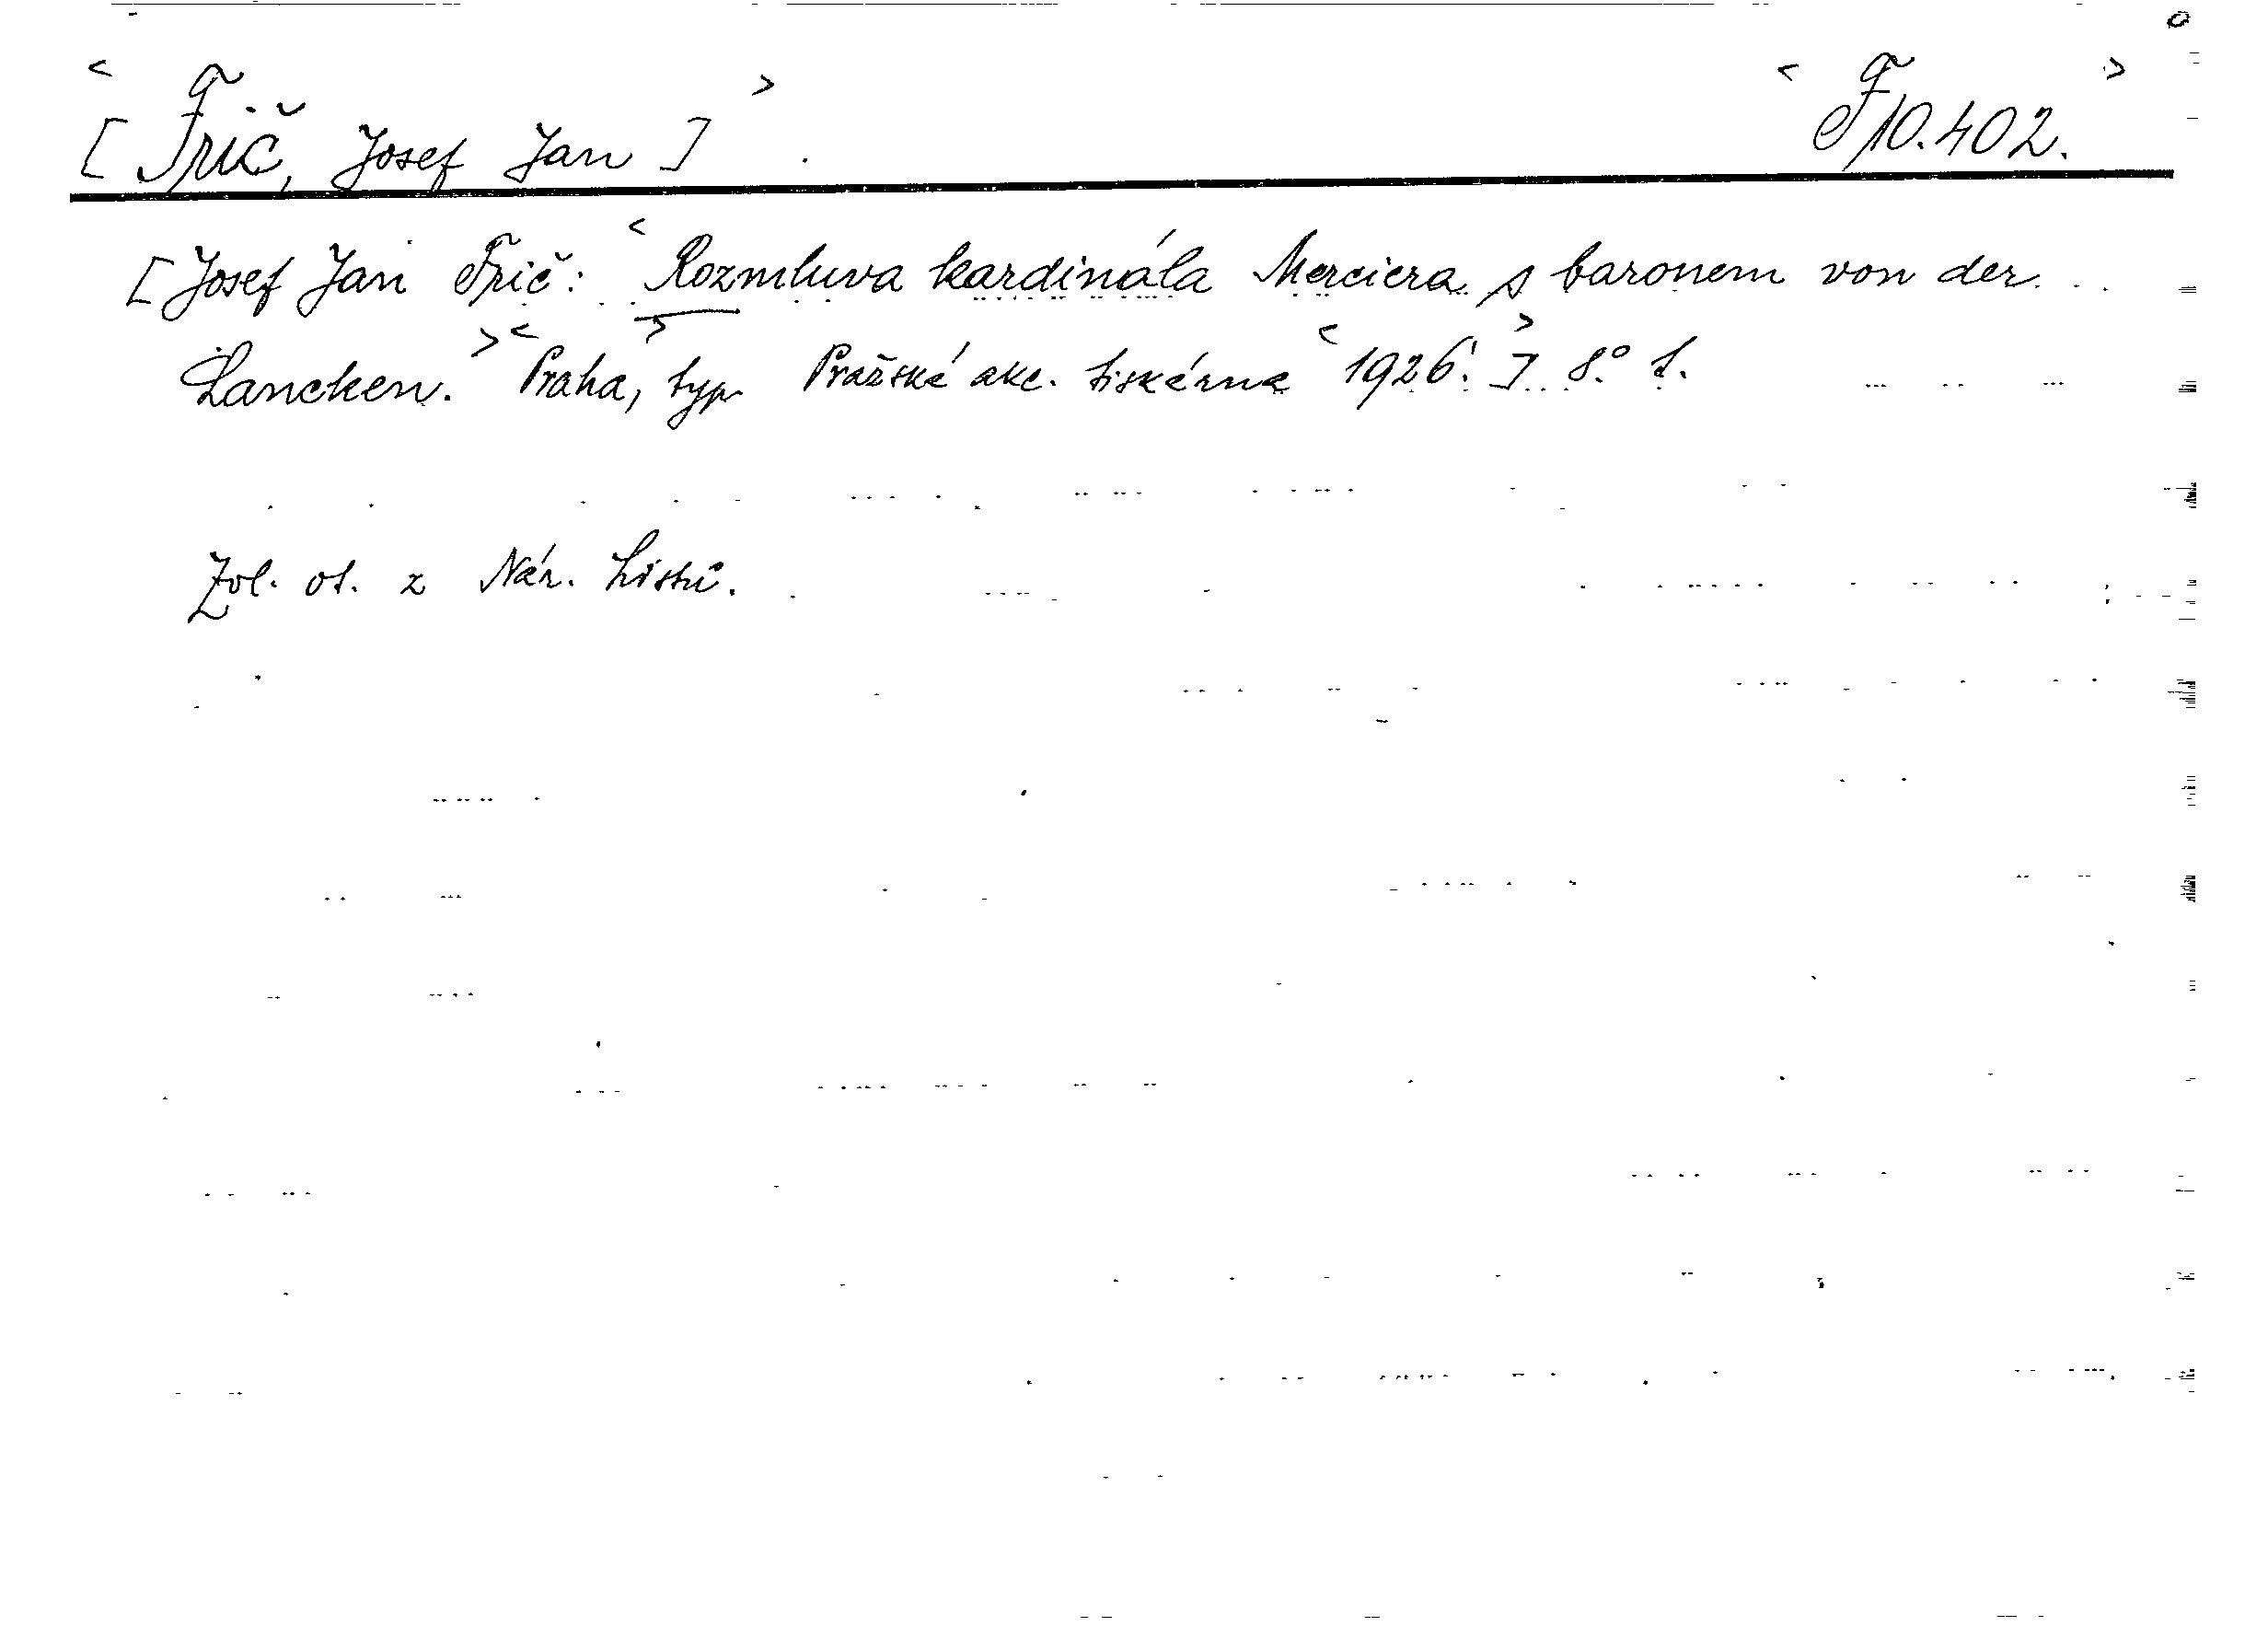 < [Frič, Josef Jan] > < F 10.402. >
[Josef Jan Frič: < Rozmluva kardinála Merciera s baronem von der
Lancken. > < Praha, > typ. Pražské akc. tiskárna < 1926. > ] 8° 1.
Zvl. ot. z Nár. Listů.